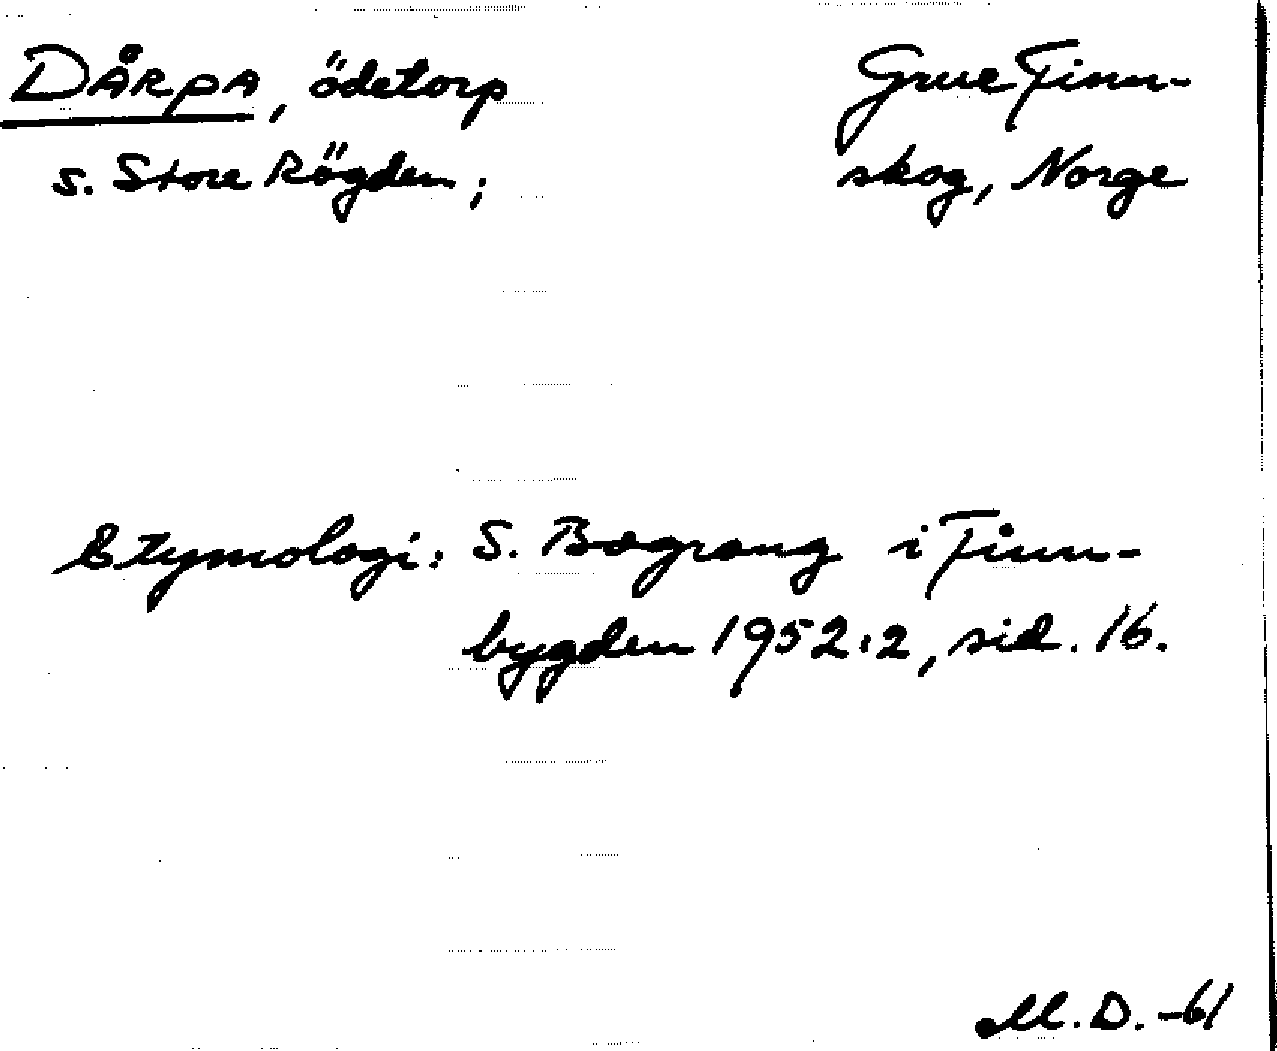 DÅRPA, ödetorp
s. Store Rögden;
Grue Finn-
skog, Norge
Etymologi: S. Bograng i Finn-
bygden 1952:2, sid. 16.
M.D. -61